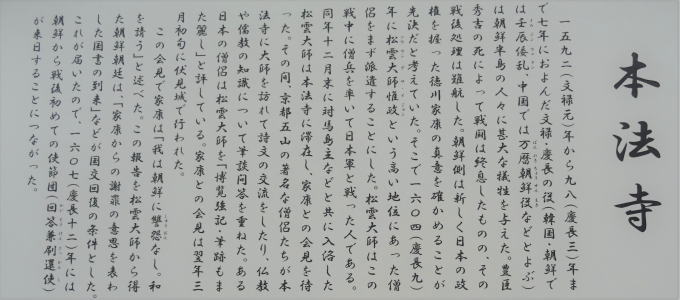 本法寺
一五九二(文禄元)年から九八(慶長三)年ま
で七年におよんだ文禄・慶長の役(韓国・朝鮮で
は壬辰倭乱、中国では万暦朝鮮役などとよぶ)
は朝鮮半島の人々に甚大な犠牲を与えた。豊臣
秀吉の死によって戦闘は終息したものの、その
戦後処理は難航した。朝鮮側は新しく日本の政
権を握った徳川家康の真意を確かめることが
先決だと考えていた。そこで一六〇四(慶長九)
年に松雲大師惟政という高い地位にあった僧
侶をまず派遣することにした。松雲大師はこの
戦中に僧兵を率いて日本軍と戦った人である。
同年十二月末に対馬島主などと共に入洛した
松雲大師は本法寺に滞在し、家康との会見を待
った。その間、京都五山の著名な僧侶たちが本
法寺に大師を訪れて詩文の交流をしたり、仏教
や儒教の知識について筆談問答を重ねた。ある
日本の僧侶は松雲大師を「博覧強記・筆跡もま
た麗し」と評している。家康との会見は翌年三
月初旬に伏見城で行われた。
この会見で家康は「我は朝鮮に讐怨なし。和
を請う」と述べた。この報告を松雲大師から得
た朝鮮朝廷は、「家康からの謝罪の意思を表わ
した国書の到来」などが国交回復の条件とした。
これが届いたので、一六〇七(慶長十二)年には
朝鮮から戦後初めての使節団(回答兼刷還使)
が来日することにつながった。